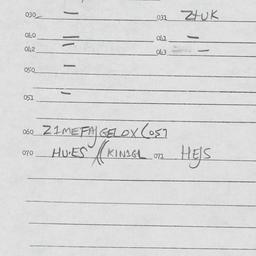 030 — 031 ZHUK
040 — 041 —
042 — 043 —
050 —
051 —
060 ZIMEFAJGELOX (051
070 HUES // KINIGL 071 HEJS